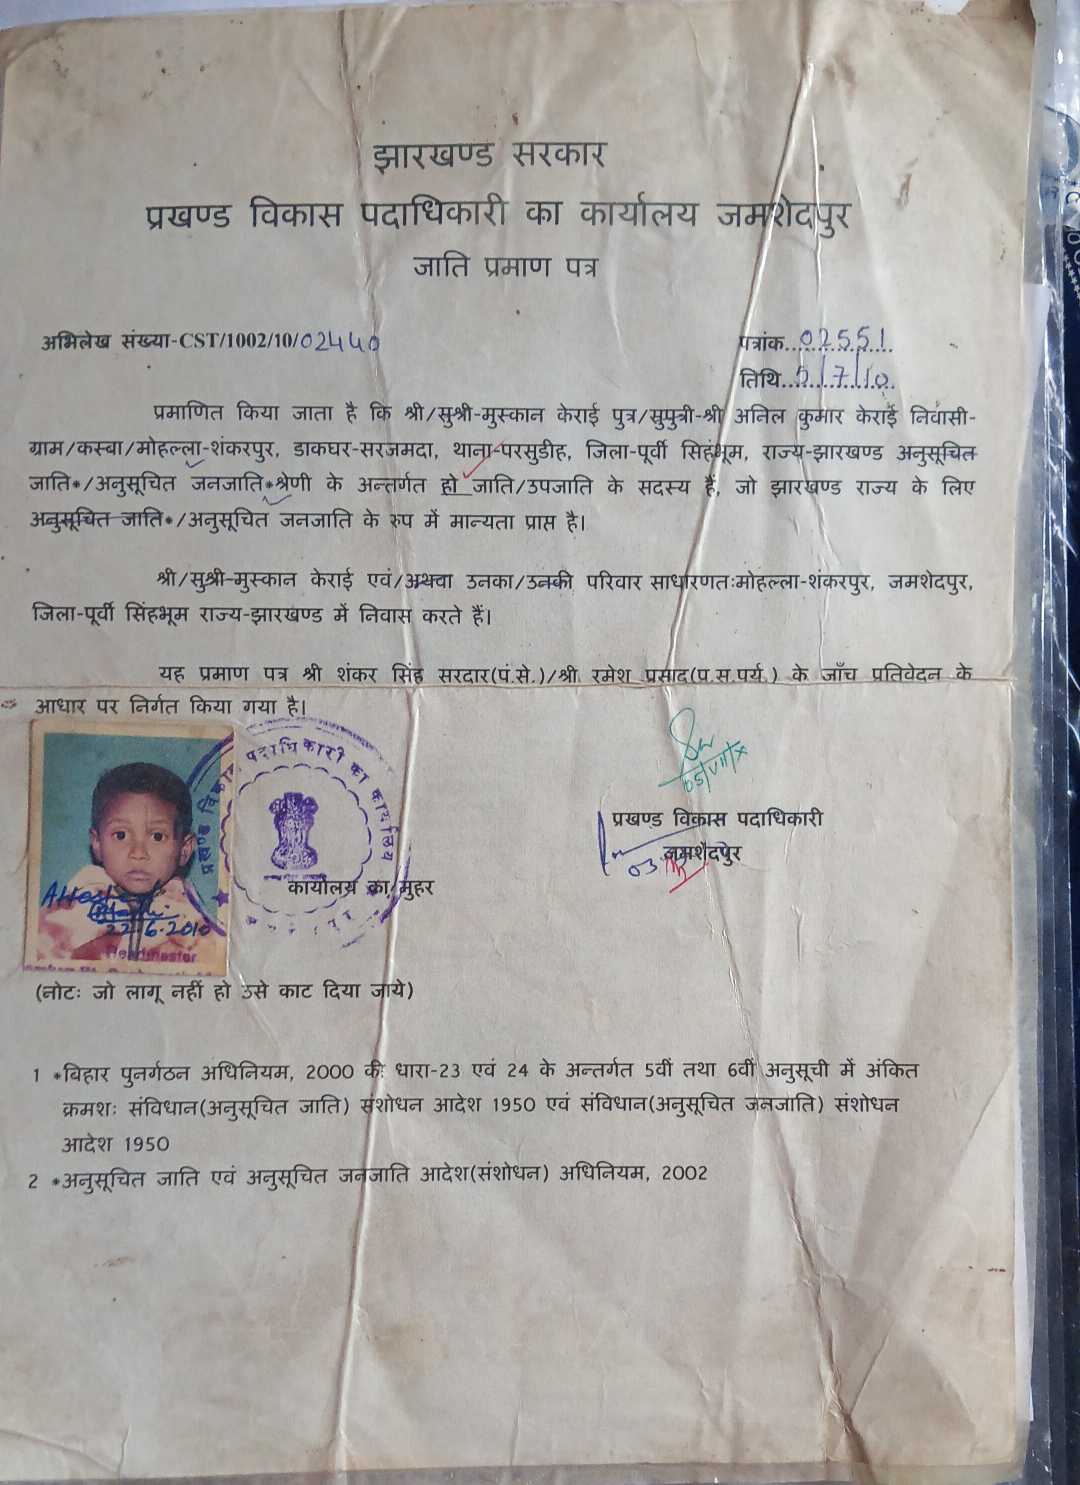 झारखण्ड सरकार
प्रखण्ड विकास पदाधिकारी का कार्यालय जमशेदपुर
जाति प्रमाण पत्र
अभिलेख संख्या-CST/1002/10/02440
पत्रांक..02551.
तिथि..5/7/10.
प्रमाणित किया जाता है कि श्री/सुश्री-मुस्कान केराई पुत्र/सुपुत्री-श्री अनिल कुमार केराई निवासी-
ग्राम/कस्बा/मोहल्ला-शंकरपुर, डाकघर-सरजमदा, थाना-परसुडीह, जिला-पूर्वी सिहंभूम, राज्य-झारखण्ड अनुसूचित
जाति*/अनुसूचित जनजाति*श्रेणी के अन्तर्गत हो जाति/उपजाति के सदस्य हैं, जो झारखण्ड राज्य के लिए
अनुसूचित जाति*/अनुसूचित जनजाति के रुप में मान्यता प्राप्त है।
श्री/सुश्री-मुस्कान केराई एवं/अथवा उनका/उनकी परिवार साधारणतःमोहल्ला-शंकरपुर, जमशेदपुर,
जिला-पूर्वी सिंहभूम राज्य-झारखण्ड में निवास करते हैं।
यह प्रमाण पत्र श्री शंकर सिंह सरदार(पं.से.)/श्री रमेश प्रसाद(प्र.स.पर्य.) के जाँच प्रतिवेदन के
आधार पर निर्गत किया गया है।
प्रखण्ड विकास पदाधिकारी का कार्यालय
05/VII/X
प्रखण्ड विकास पदाधिकारी
जमशेदपुर
03
कार्यालय का मुहर
Attested
22.6.2010
Headmaster
(नोटः जो लागू नहीं हो उसे काट दिया जाये)
1 *बिहार पुनर्गठन अधिनियम, 2000 की धारा-23 एवं 24 के अन्तर्गत 5वीं तथा 6वीं अनुसूची में अंकित
क्रमशः संविधान(अनुसूचित जाति) संशोधन आदेश 1950 एवं संविधान(अनुसूचित जनजाति) संशोधन
आदेश 1950
2 *अनुसूचित जाति एवं अनुसूचित जनजाति आदेश(संशोधन) अधिनियम, 2002